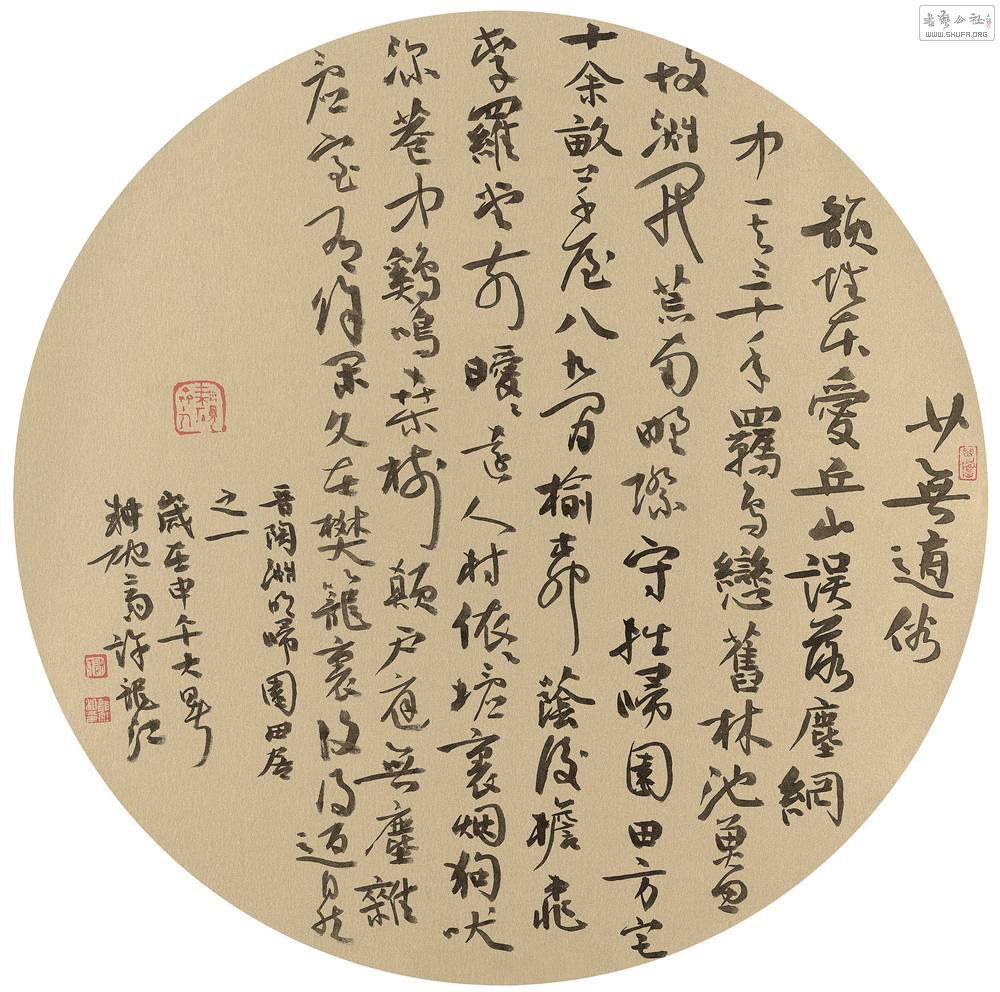 少無適俗
韻性本愛丘山誤落塵網
中一去三十年羈鳥戀舊林池魚思
故淵開荒南野際守拙歸園田方宅
十余畝草屋八九間榆柳蔭後檐桃
李羅堂前曖曖遠人村依依墟裏烟狗吠
深巷中鷄鳴桑樹顛戶庭無塵雜
虛室有餘閑久在樊籠裏復得返自然
晉陶淵明歸園田居
之一
歲在甲午大暑
許龍江
WWW.SHUFA.ORG